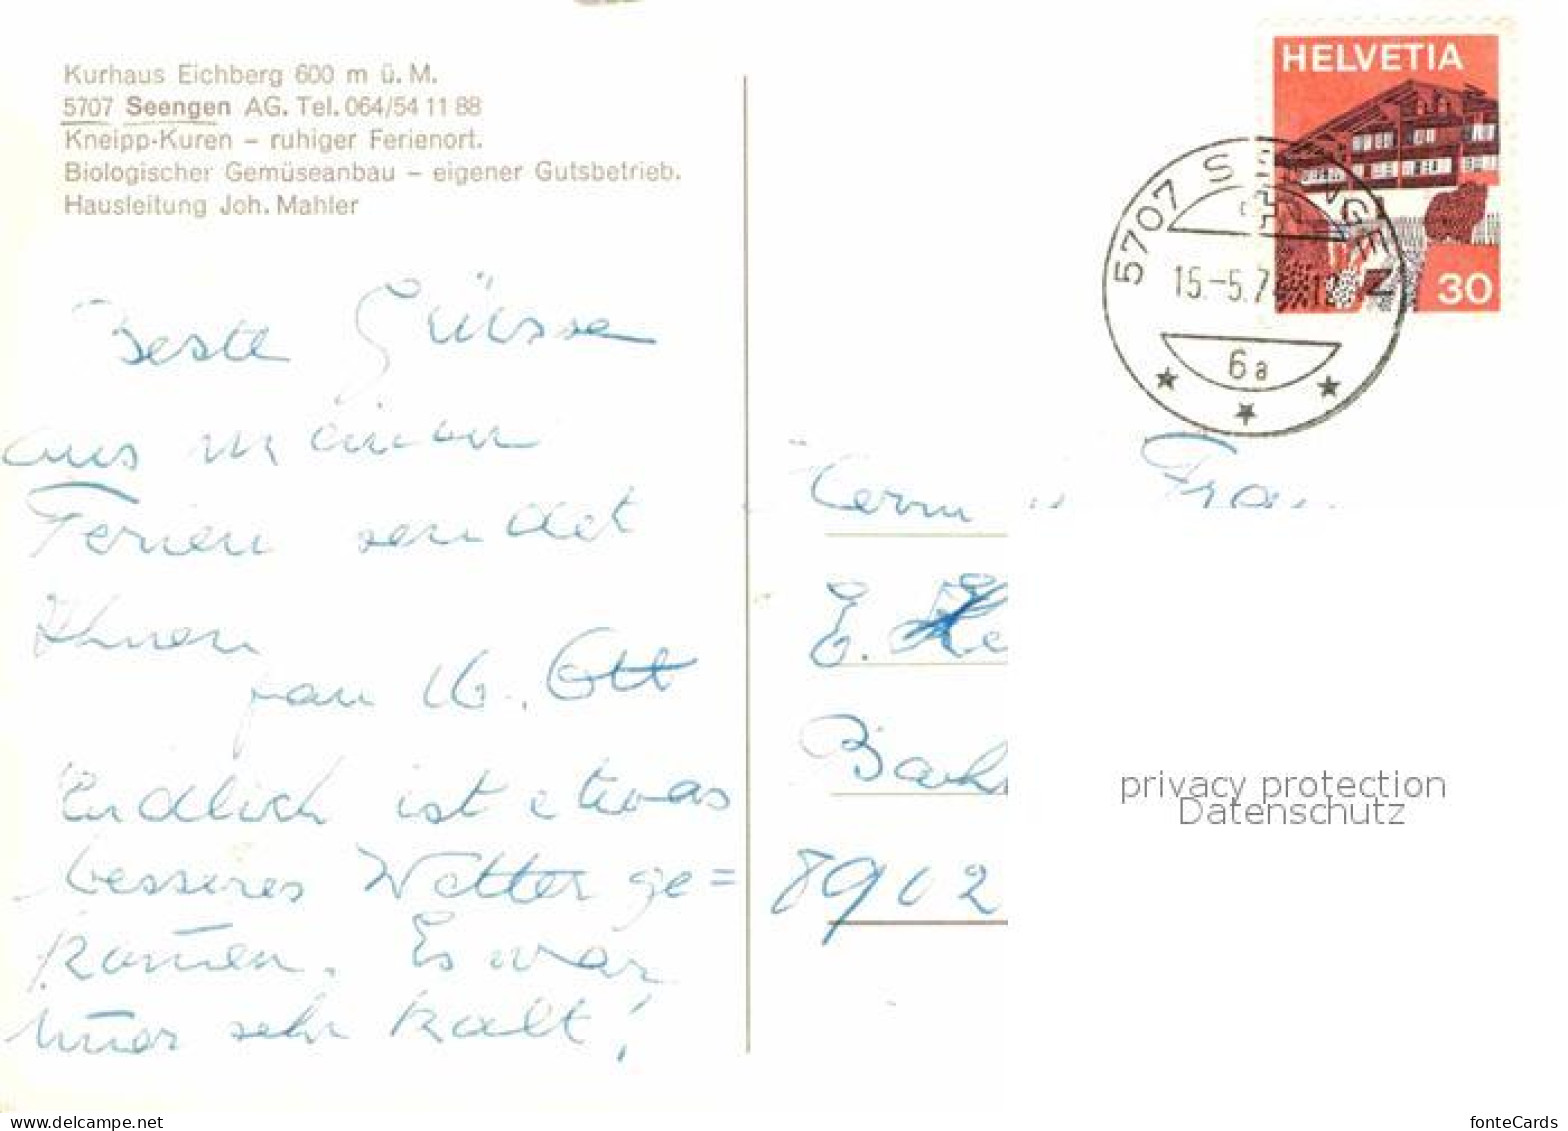 Kurhaus Eichberg 600 m ü. M.
5707 Seengen AG. Tel. 064/54 11 88
Kneipp-Kuren – ruhiger Ferienort.
Biologischer Gemüseanbau – eigener Gutsbetrieb.
Hausleitung Joh. Mahler
Beste Grüsse
aus meinen
Ferien sendet
Ihnen
Ott
Endlich ist etwas
besseres Wetter ge=
kom̄en. Es war
im̄er sehr kalt!
HELVETIA
30
5707 SEENGEN
15.-5.7
6a
Herrn u Frau
E.
Bah
8902
privacy protection
Datenschutz
www.delcampe.net
fonteCards